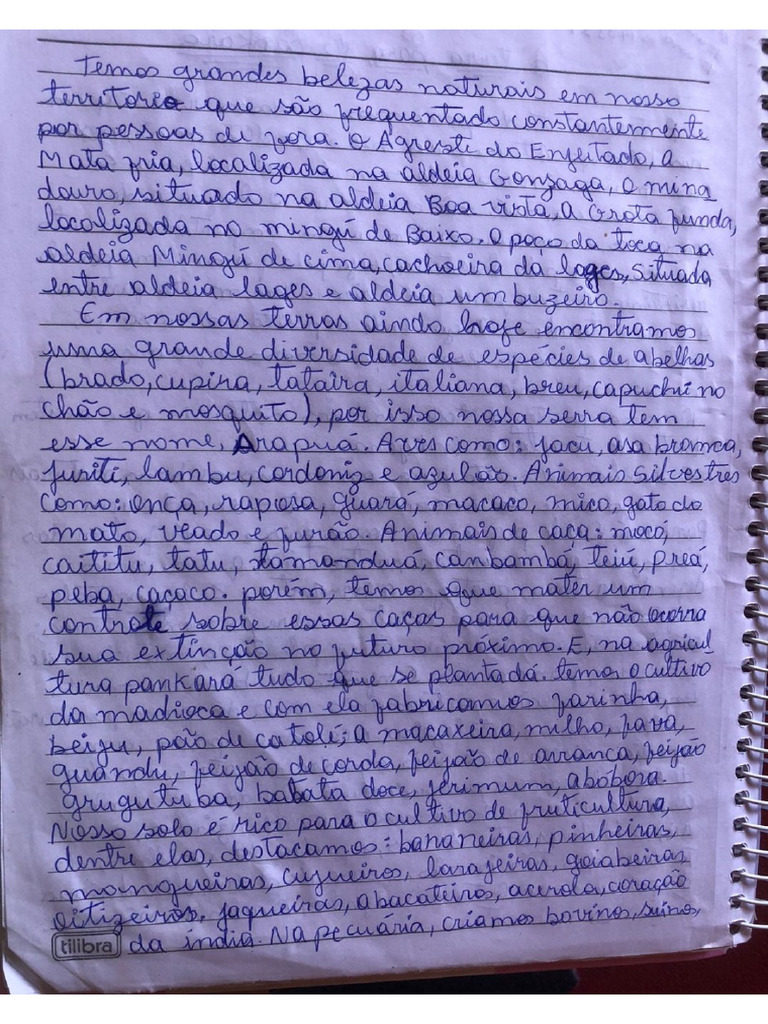 Temos grandes belezas naturais em nosso
territorio que são frequentado constantermente
por pessoas de fora. O Agreste do Enjeitado, a
Mata fria, localizada na aldeia Gonzaga, o mina
douro, situado na aldeia Boa vista, a Grota funda,
localizada no mingú de Baixo. O poço da toca na
aldeia Mingú de cima, cachoeira da lages, situada
entre aldeia lages e aldeia umbuzeiro.
Em nossas terras aindo hoje encontramos
uma grande diversidade de espécies de abelhas
(brado, cupira, tataira, italiana, breu, capuchú no
chão e mosquito), por isso nossa serra tem
esse nome, Arapuá. Aves como: jacu, asa branca,
juriti, lambu, cordoniz e azulão. Animais silvestres
como: onça, raposa, guará, macaco, mico, gato do
mato, veado e furão. Animais de caça: mocó,
caititu, tatu, tamanduá, canbambá, teiú, preá,
peba, caçaco. porém, temos que mater um
controle sobre essas caças para que não ocorra
sua extinção no futuro próximo. E, na agricul
tura pankará tudo que se planta dá. temos o cultivo
da madioca e com ela fabricamos farinha,
beiju, pão de catolé; a macaxeira, milho, fava,
guandu, feijão de corda, feijão de arranca, feijão
grugutuba, batata doce, jerimum, abobora.
Nosso solo é rico para o cultivo de fruticultura,
dentre elas, destacamos: bananeiras, pinheiras,
mangueiras, cajueiros, larajeiras, goiabeiras
oitizeiros, jaqueiras, abacateiros, acerola, coração
da india. Na pecuária, criamos bovinos, suinos,
tilibra